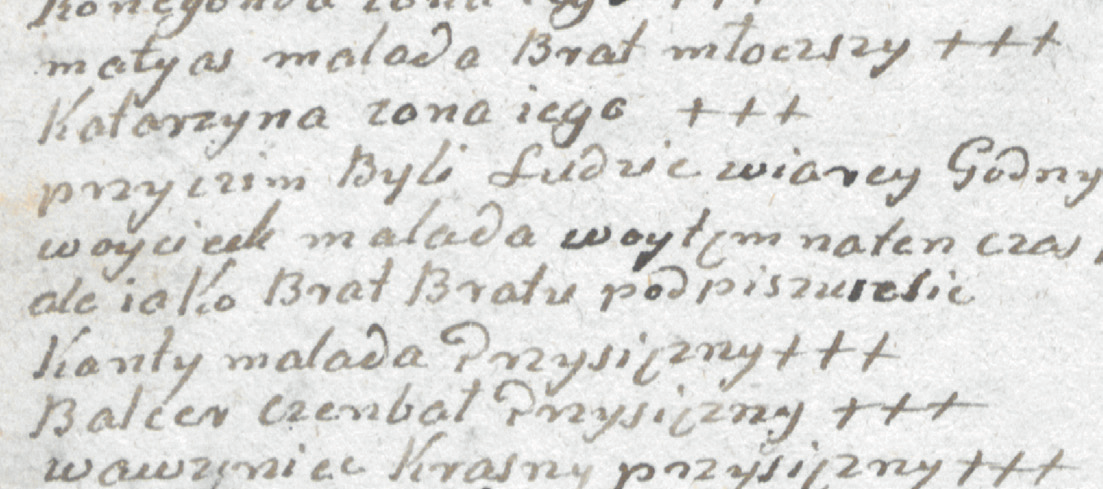 Konegonda zona iego + + +
matyas malada Brat młoczszy + + +
Katarzyna zona iego + + +
przy czim Byli Ludzie wiarey Godny
woyciek malada woytem naten czas
ale iako Brat Bratu podpiszuie sie
Kanty malada Przysiężny + + +
Balcer czenbat Przysiężny + + +
wawrzyniec Krasny przysiężny + + +